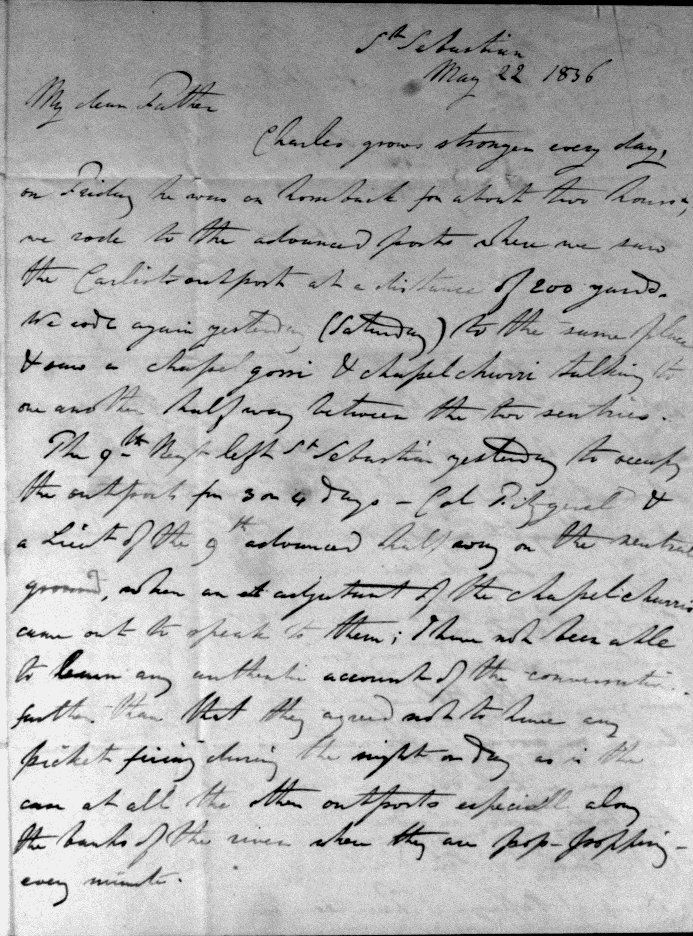 St Sebastian
May 22 1836
My dear Father
Charles grows stronger every day,
on Friday he was on horseback for about two hours,
we rode to the advanced posts where we saw
the Carlists outpost at a distance of 200 yards.
We rode again yesterday (Saturday) to the same place
& saw a chapelgorri & chapelchurri talking to
one another half way between the two sentries.
The 9th Regt left St Sebastian yesterday to occupy
the outposts for 3 or 4 days - Col Fitzgerald &
a Lieut of the 9th advanced half way on the neutral
ground, when an adjutant of the chapelchurris
came out to speak to them; I have not been able
to learn any authentic account of the conversation.
further than that they agreed not to have any
picket firing during the night or day as is the
case at all the other outposts especiall along
the banks of the river where they are pop-popping-
every minute.